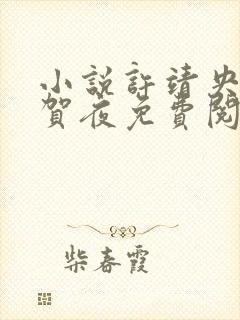 小說許靖央
賀夜免費閱
柴春霞